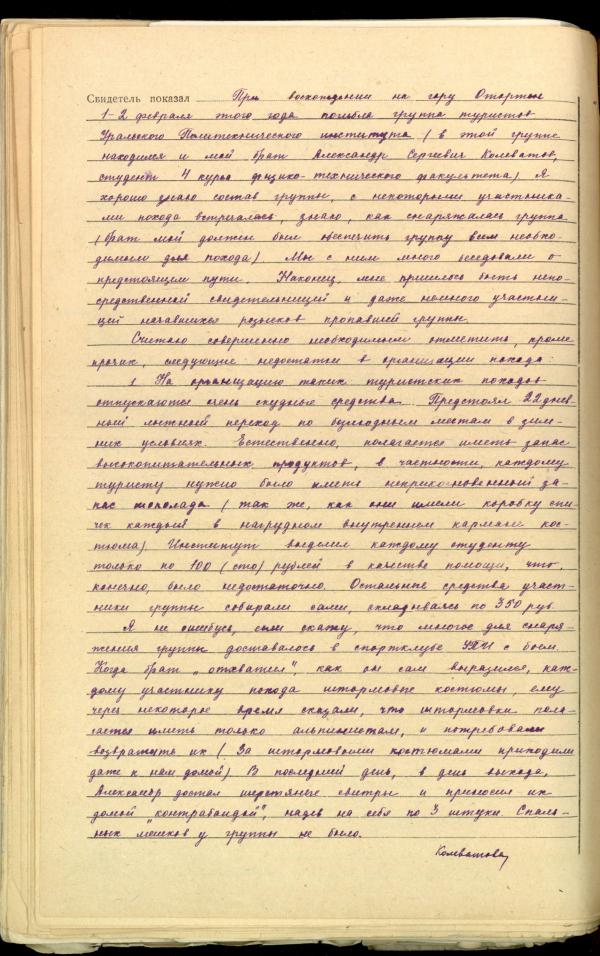 Свидетель показал При восхождении на гору Отортен
1-2 февраля этого года погибла группа туристов
Уральского Политехнического института (в этой группе
находился и мой брат Александр Сергеевич Колеватов,
студент 4 курса физико-технического факультета) Я
хорошо знаю состав группы, с некоторыми участника-
ми похода встречалась, знаю, как снаряжалась группа
(брат мой должен был обеспечить группу всем необхо-
димым для похода) Мы с ним много беседовали о
предстоящем пути. Наконец, мне пришлось быть непо-
средственной свидетельницей и даже немного участни-
цей начавшихся розысков пропавшей группы.
Считаю совершенно необходимым отметить, кроме
прочих, следующие недостатки в организации похода:
1 На организацию таких туристских походов
отпускаются очень скудные средства. Предстоял 22днев-
ный лыжный переход по безлюдным местам в зим-
них условиях. Естественно, полагается иметь запас
высокопитательных продуктов, в частности, каждому
туристу нужно было иметь неприкосновенный за-
пас шоколада (так же, как они имели коробку спи-
чек каждый в нагрудном внутреннем кармане кос-
тюма) Институт выделил каждому студенту
только по 100 (сто) рублей в качестве помощи, что,
конечно, было недостаточно. Остальные средства участ-
ники группы собирали сами, складываясь по 350 руб.
Я не ошибусь, если скажу, что многое для снаря-
жения группы доставалось в спортклубе УПИ с боем.
Когда брат „отхватил", как он сам выразился, каж-
дому участнику похода штормовые костюмы, ему
через некоторое время сказали, что штормовки пола-
гается иметь только альпинистам, и потребовали
возвратить их (За штормовыми костюмами приходили
даже к нам домой) В последний день, в день выхода,
Александр достал шерстяные свитры и приносил их
домой „контрабандой", надев на себя по 3 штуки. Спаль-
ных мешков у группы не было.
Колеватова